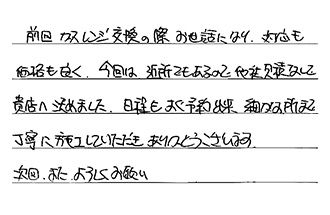 前回 ガスレンジ交換の際 お世話になり、対応も
価格も良く、今回は 近所でもあるので 他社見積なしで
貴店へ決めました。日程も よく予約出来、細かな所まで
丁寧に施工していただき ありがとうございます。
次回、また よろしくお願い